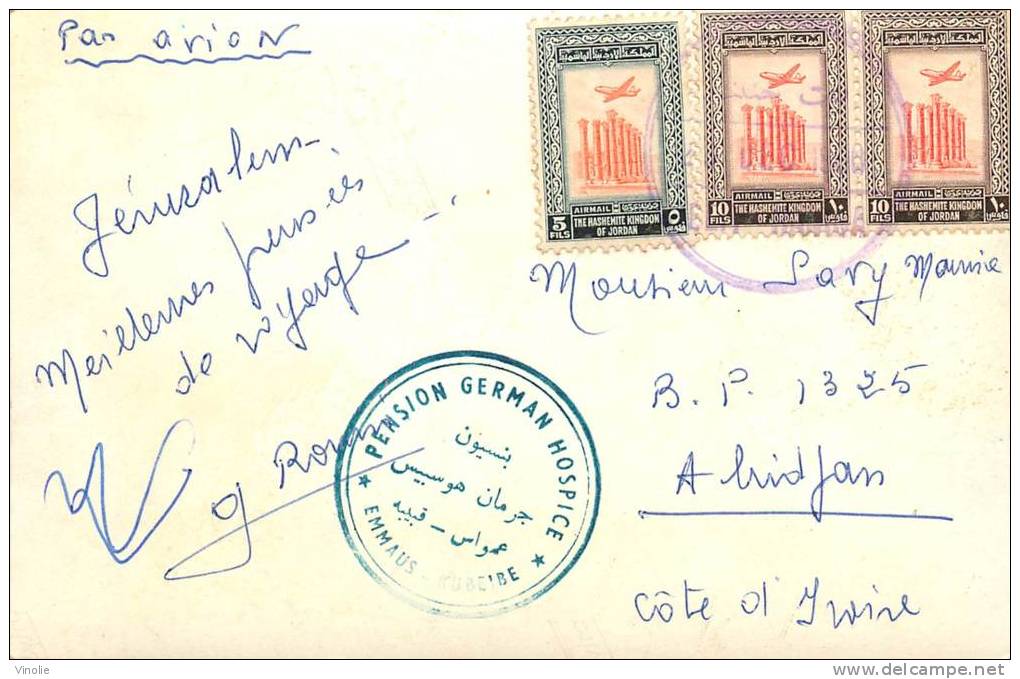 Par avion
Jérusalem.
Meilleures pensées
de voyage
PENSION GERMAN HOSPICE
بنسيون
جرمان هوسبيس
عمواس - قبيبه
★ EMMAUS - KUBEIBE ★
المملكة الاردنية الهاشمية
AIRMAIL
5 FILS
THE HASHEMITE KINGDOM
OF JORDAN
٥ فلوس
المملكة الاردنية الهاشمية
AIRMAIL
10 FILS
THE HASHEMITE KINGDOM
OF JORDAN
١٠ فلوس
المملكة الاردنية الهاشمية
AIRMAIL
10 FILS
THE HASHEMITE KINGDOM
OF JORDAN
١٠ فلوس
Monsieur Lavy
B.P. 1325
Abidjan
Côte d'Ivoire
Vinolie
http://vinolie.delcampe.net